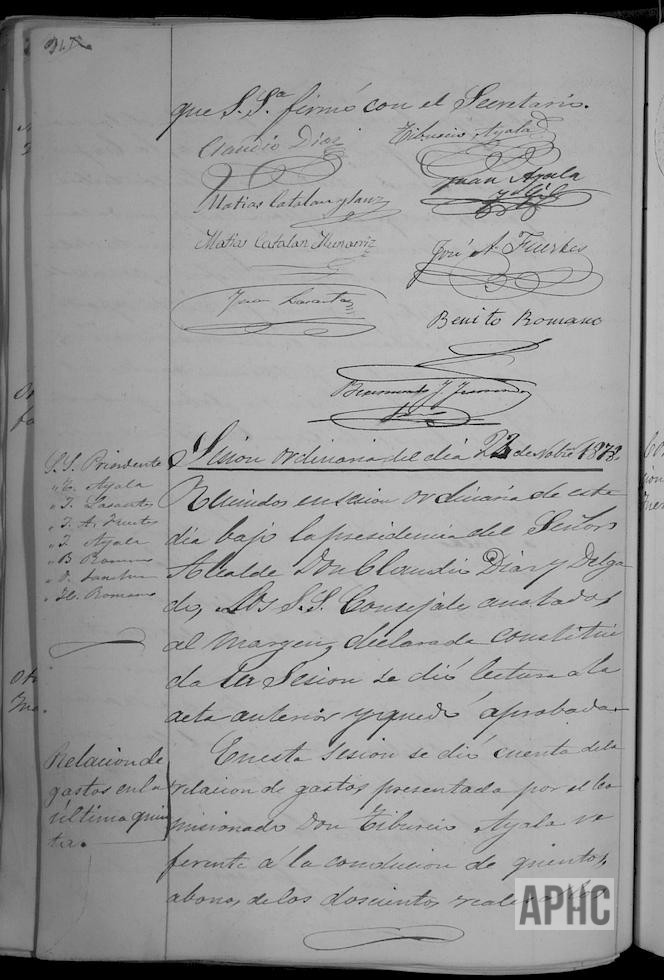 que S. Sª firmó con el Secretario.
Claudio Diaz
Tiburcio Ayala
Juan Ayala
y Gil
Matias Catalan y Sanz
Matias Catalan Hernarriz
José A. Fuertes
Juan Lasanta
Benito Romano
Sesion ordinaria del dia 22 de Nobre 1878.
S.S. Presidente
" T. Ayala
" J. Lasanta
" J. A. Fuertes
" J. Ayala
" B. Romano
" Romano
Reunidos en sesion ordinaria de este
dia bajo la presidencia del Señor
Alcalde Don Claudio Diaz y Delga
do, los S.S. Consejale anotados
al margen, declarada constitui
da la Sesion se dió lectura a la
acta anterior y quedó aprobada.
Relacion de
gastos en la
última quin
ta.
En esta sesion se dió cuenta de la
relacion de gastos presentada por el co
misionado Don Tiburcio Ayala re
ferente á la conducion de quintos,
abonos de los doscientos reales
APHC